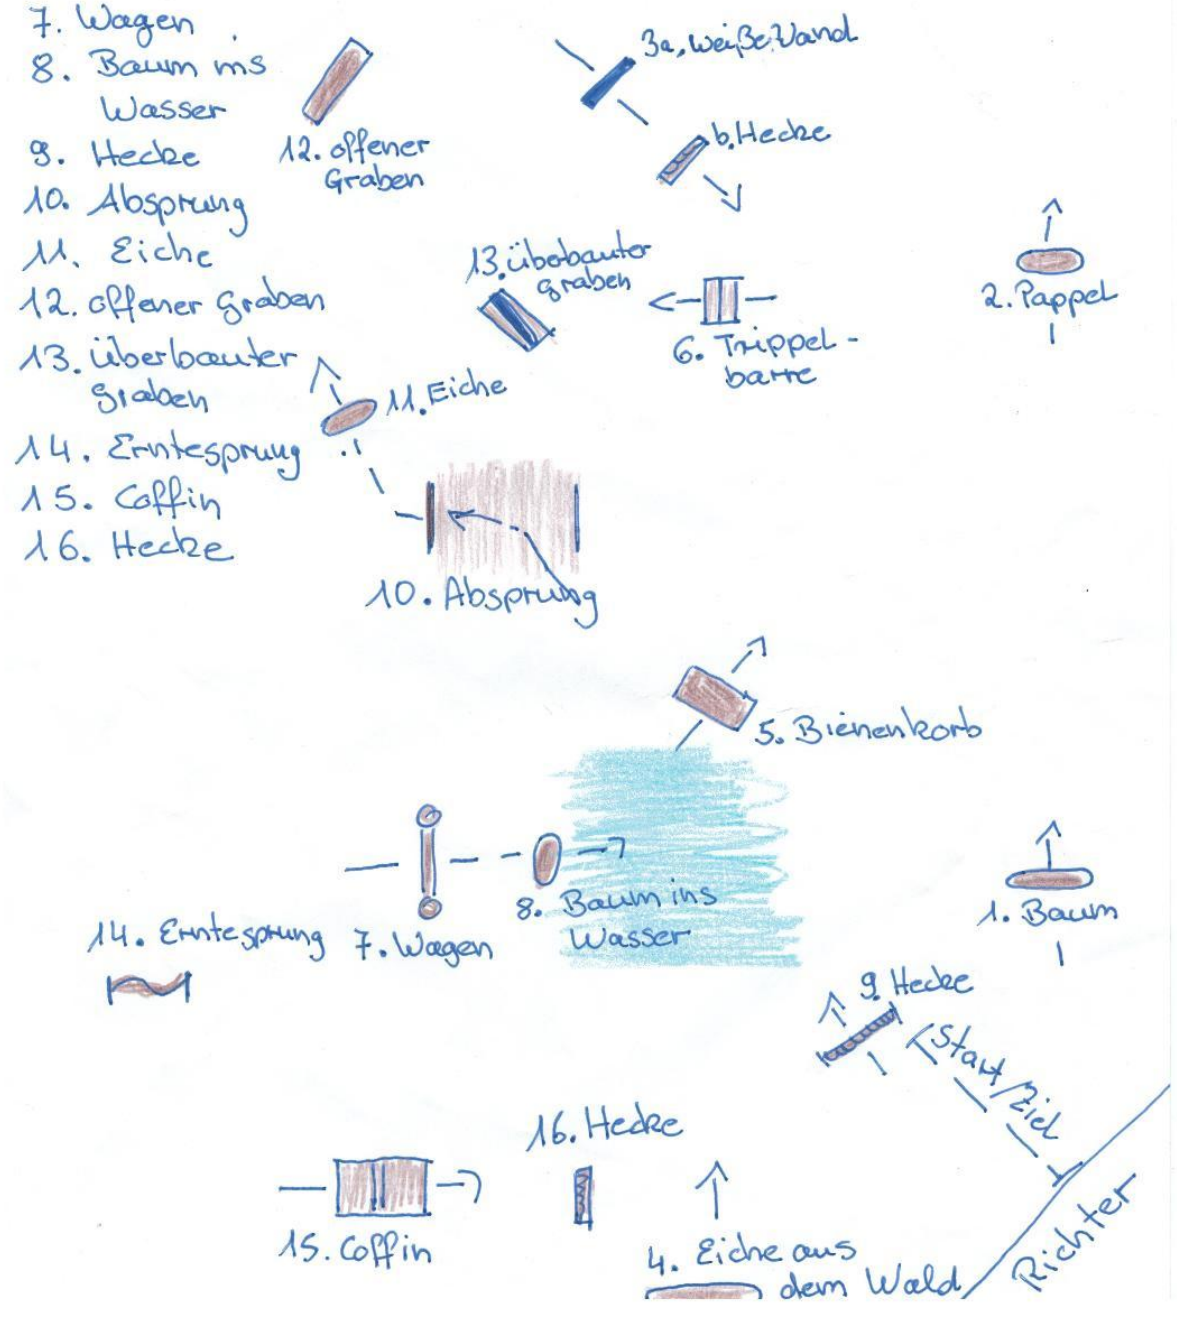 7. Wagen
8. Baum ins
Wasser
9. Hecke
10. Absprung
11. Eiche
12. offener Graben
13. überbauter
graben
14. Erntesprung
15. Coffin
16. Hecke
12. offener
Graben
3a. weiße Wand
b. Hecke
13. überbauter
graben
6. Trippel-
barre
2. Pappel
11. Eiche
10. Absprung
5. Bienenkorb
14. Erntesprung
7. Wagen
8. Baum ins
Wasser
1. Baum
9. Hecke
Start/Ziel
16. Hecke
15. Coffin
4. Eiche aus
dem Wald
Richter